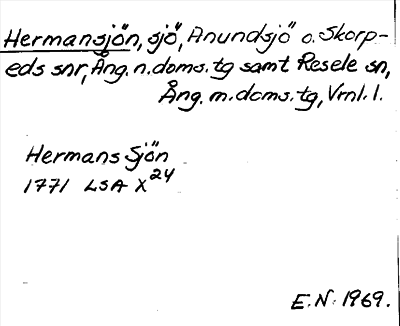 Hermansjön, sjö, Anundsjö o. Skorp-
eds snr, Ång. n. doms. tg samt Resele sn,
Ång. m. doms. tg, Vrnl. l.
Hermans Sjön
1771 LSA X 24
E.N. 1969.